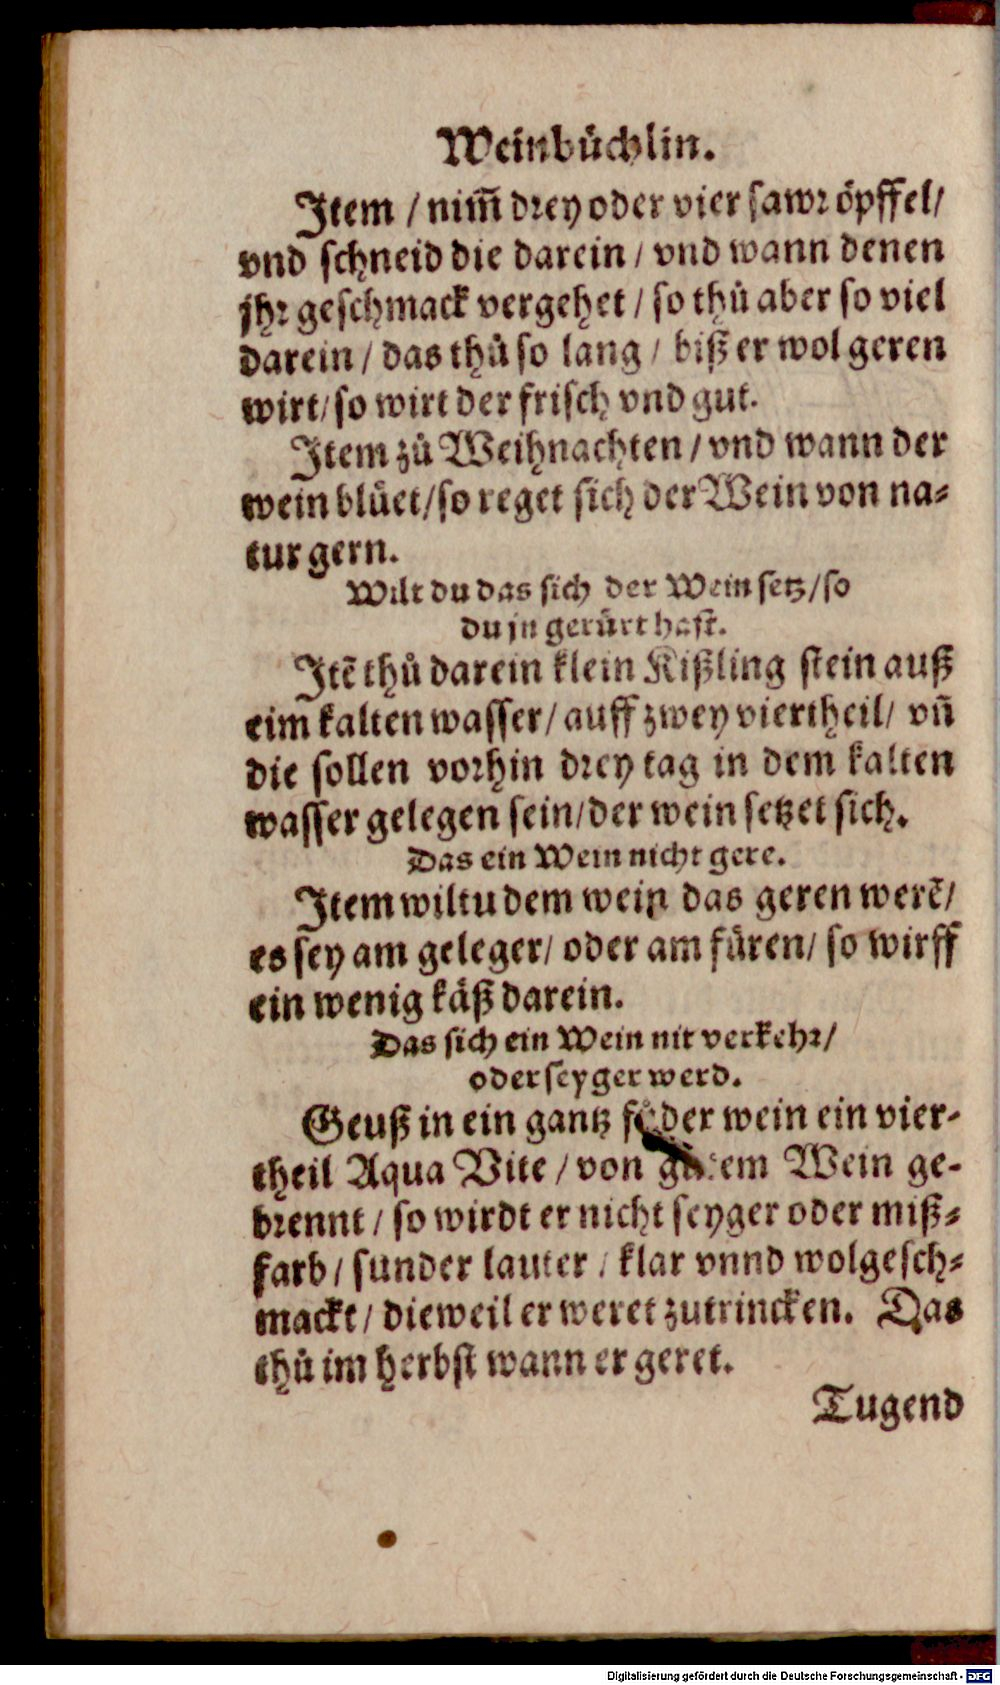 Weinbůchlin.
Item / nim̃ drey oder vier sawr öpffel/
vnd schneid die darein / vnd wann denen
jhr geschmack vergehet / so thů aber so viel
darein / das thů so lang / biß er wol geren
wirt/ so wirt der frisch vnd gut.
Item zů Weihnachten / vnd wann der
wein blůet/so reget sich der Wein von na-
tur gern.
Wilt du das sich der Wein setz/so
du jn gerůrt hast.
Itẽ thů darein klein Kißling stein auß
eim kalten wasser/ auff zwey viertheil/ vñ
die sollen vorhin drey tag in dem kalten
wasser gelegen sein/der wein setzet sich.
Das ein Wein nicht gere.
Item wiltu dem wein das geren werẽ/
es sey am geleger/ oder am fůren/ so wirff
ein wenig käß darein.
Das sich ein Wein nit verkehr/
oder seyger werd.
Geuß in ein gantz fůder wein ein vier-
theil Aqua Vite / von gůtem Wein ge-
brennt / so wirdt er nicht seyger oder miß-
farb / sunder lauter / klar vnnd wolgesch-
mackt / dieweil er weret zutrincken. Das
thů im herbst wann er geret.
Tugend
Digitalisierung gefördert durch die Deutsche Forschungsgemeinschaft - DFG